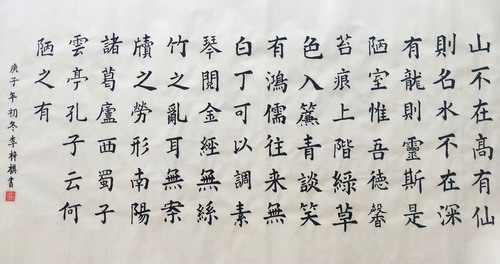 山不在高有仙
則名水不在深
有龍則靈斯是
陋室惟吾德馨
苔痕上階綠草
色入簾青談笑
有鴻儒往來無
白丁可以調素
琴閱金經無絲
竹之亂耳無案
牘之勞形南陽
諸葛廬西蜀子
雲亭孔子云何
陋之有
庚子年初冬李梓棋書